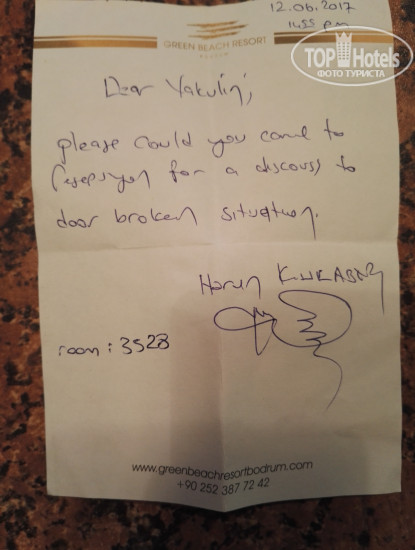 12.06.2017
14:55 pm
GREEN BEACH RESORT
BODRUM
TOP Hotels
ФОТО ТУРИСТА
Dear Yakulin,
please could you come to
resepsiyon for a discouss to
door broken situation.
Harun
room : 3528
www.greenbeachresortbodrum.com
+90 252 387 72 42